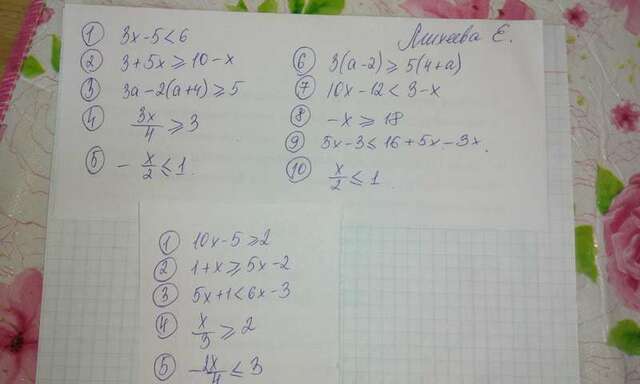 Лихеева Е.
① 3x-5<6
② 3+5x≥10-x
③ 3a-2(a+4)≥5
④ 3x/4≥3
⑤ -x/2≤1.
⑥ 3(a-2)≥5(4+a)
⑦ 10x-12<3-x
⑧ -x≥18
⑨ 5x-3≤16+5x-3x.
⑩ x/2≤1.
① 10x-5≥2
② 1+x≥5x-2
③ 5x+1<6x-3
④ x/3≥2
⑤ -2x/4≤3